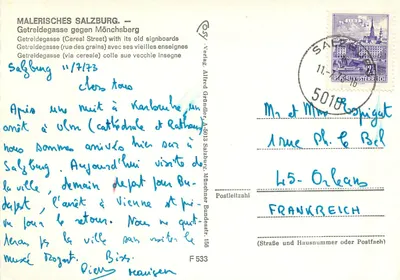 MALERISCHES SALZBURG. —
Getreidegasse gegen Mönchsberg
Getreidegasse (Cereal Street) with its old signboards
Getreidegasse (rue des grains) avec ses vieilles enseignes
Getreidegasse (via cereale) colle sue vecchie insegne
Salzburg 11/7/73
Chers tous
Après une nuit à Karlsruhe, un
arrêt à Ulm (Cathédrale et Rathaus)
nous sommes arrivés hier soir à
Salzburg. Aujourd'hui visite de
la ville, demain départ pour Bu-
dapest, l'arrêt à Vienne est pré-
vu pour le retour. Nous ne quit-
terons pas la ville sans visiter le
musée Mozart. Bises.
F 533
Verlag Alfred Gründler, A-5012 Salzburg, Münchner Bundesstr. 156
SALZBURG
5010
Mr et Mme
1 rue Ph. le Bel
45-Orleans
FRANKREICH
Postleitzahl
(Straße und Hausnummer oder Postfach)